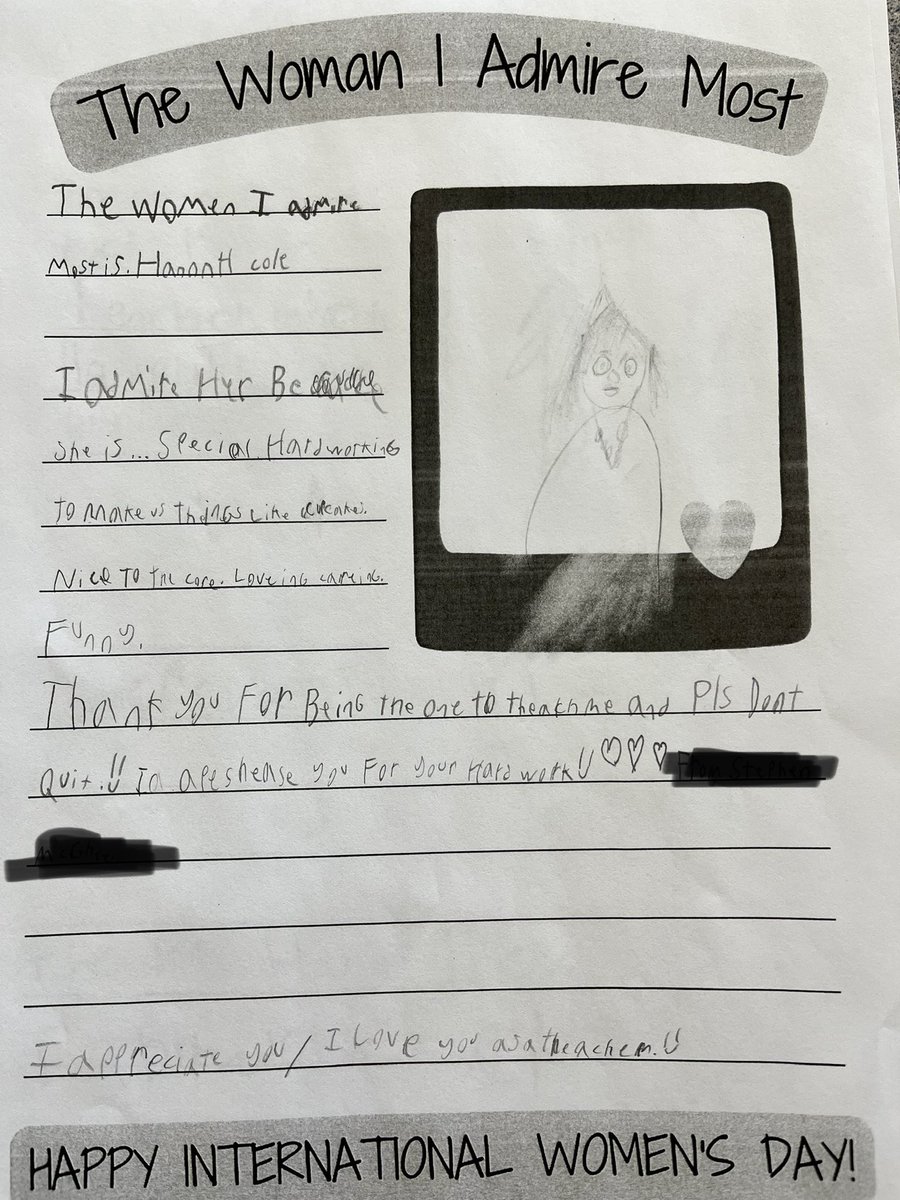 The Woman I Admire Most
The Women I admire
Most is. HannaH cole
I admire Her Because
She is... Special Hardworking
To make us things Like cupcakes.
Nice To the core. Loveing careing.
Funny.
Thank you For Being the one to theach me and Pls Dont
Quit.!! you For your Hard work!! ♡♡♡
I appreciate you/ I Love you as a theacher.!!
HAPPY INTERNATIONAL WOMEN'S DAY!